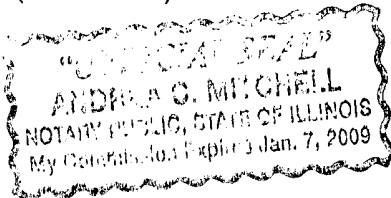 "OFFICIAL SEAL"
ANDREA C. MITCHELL
NOTARY PUBLIC, STATE OF ILLINOIS
My Commission Expires Jan. 7, 2009